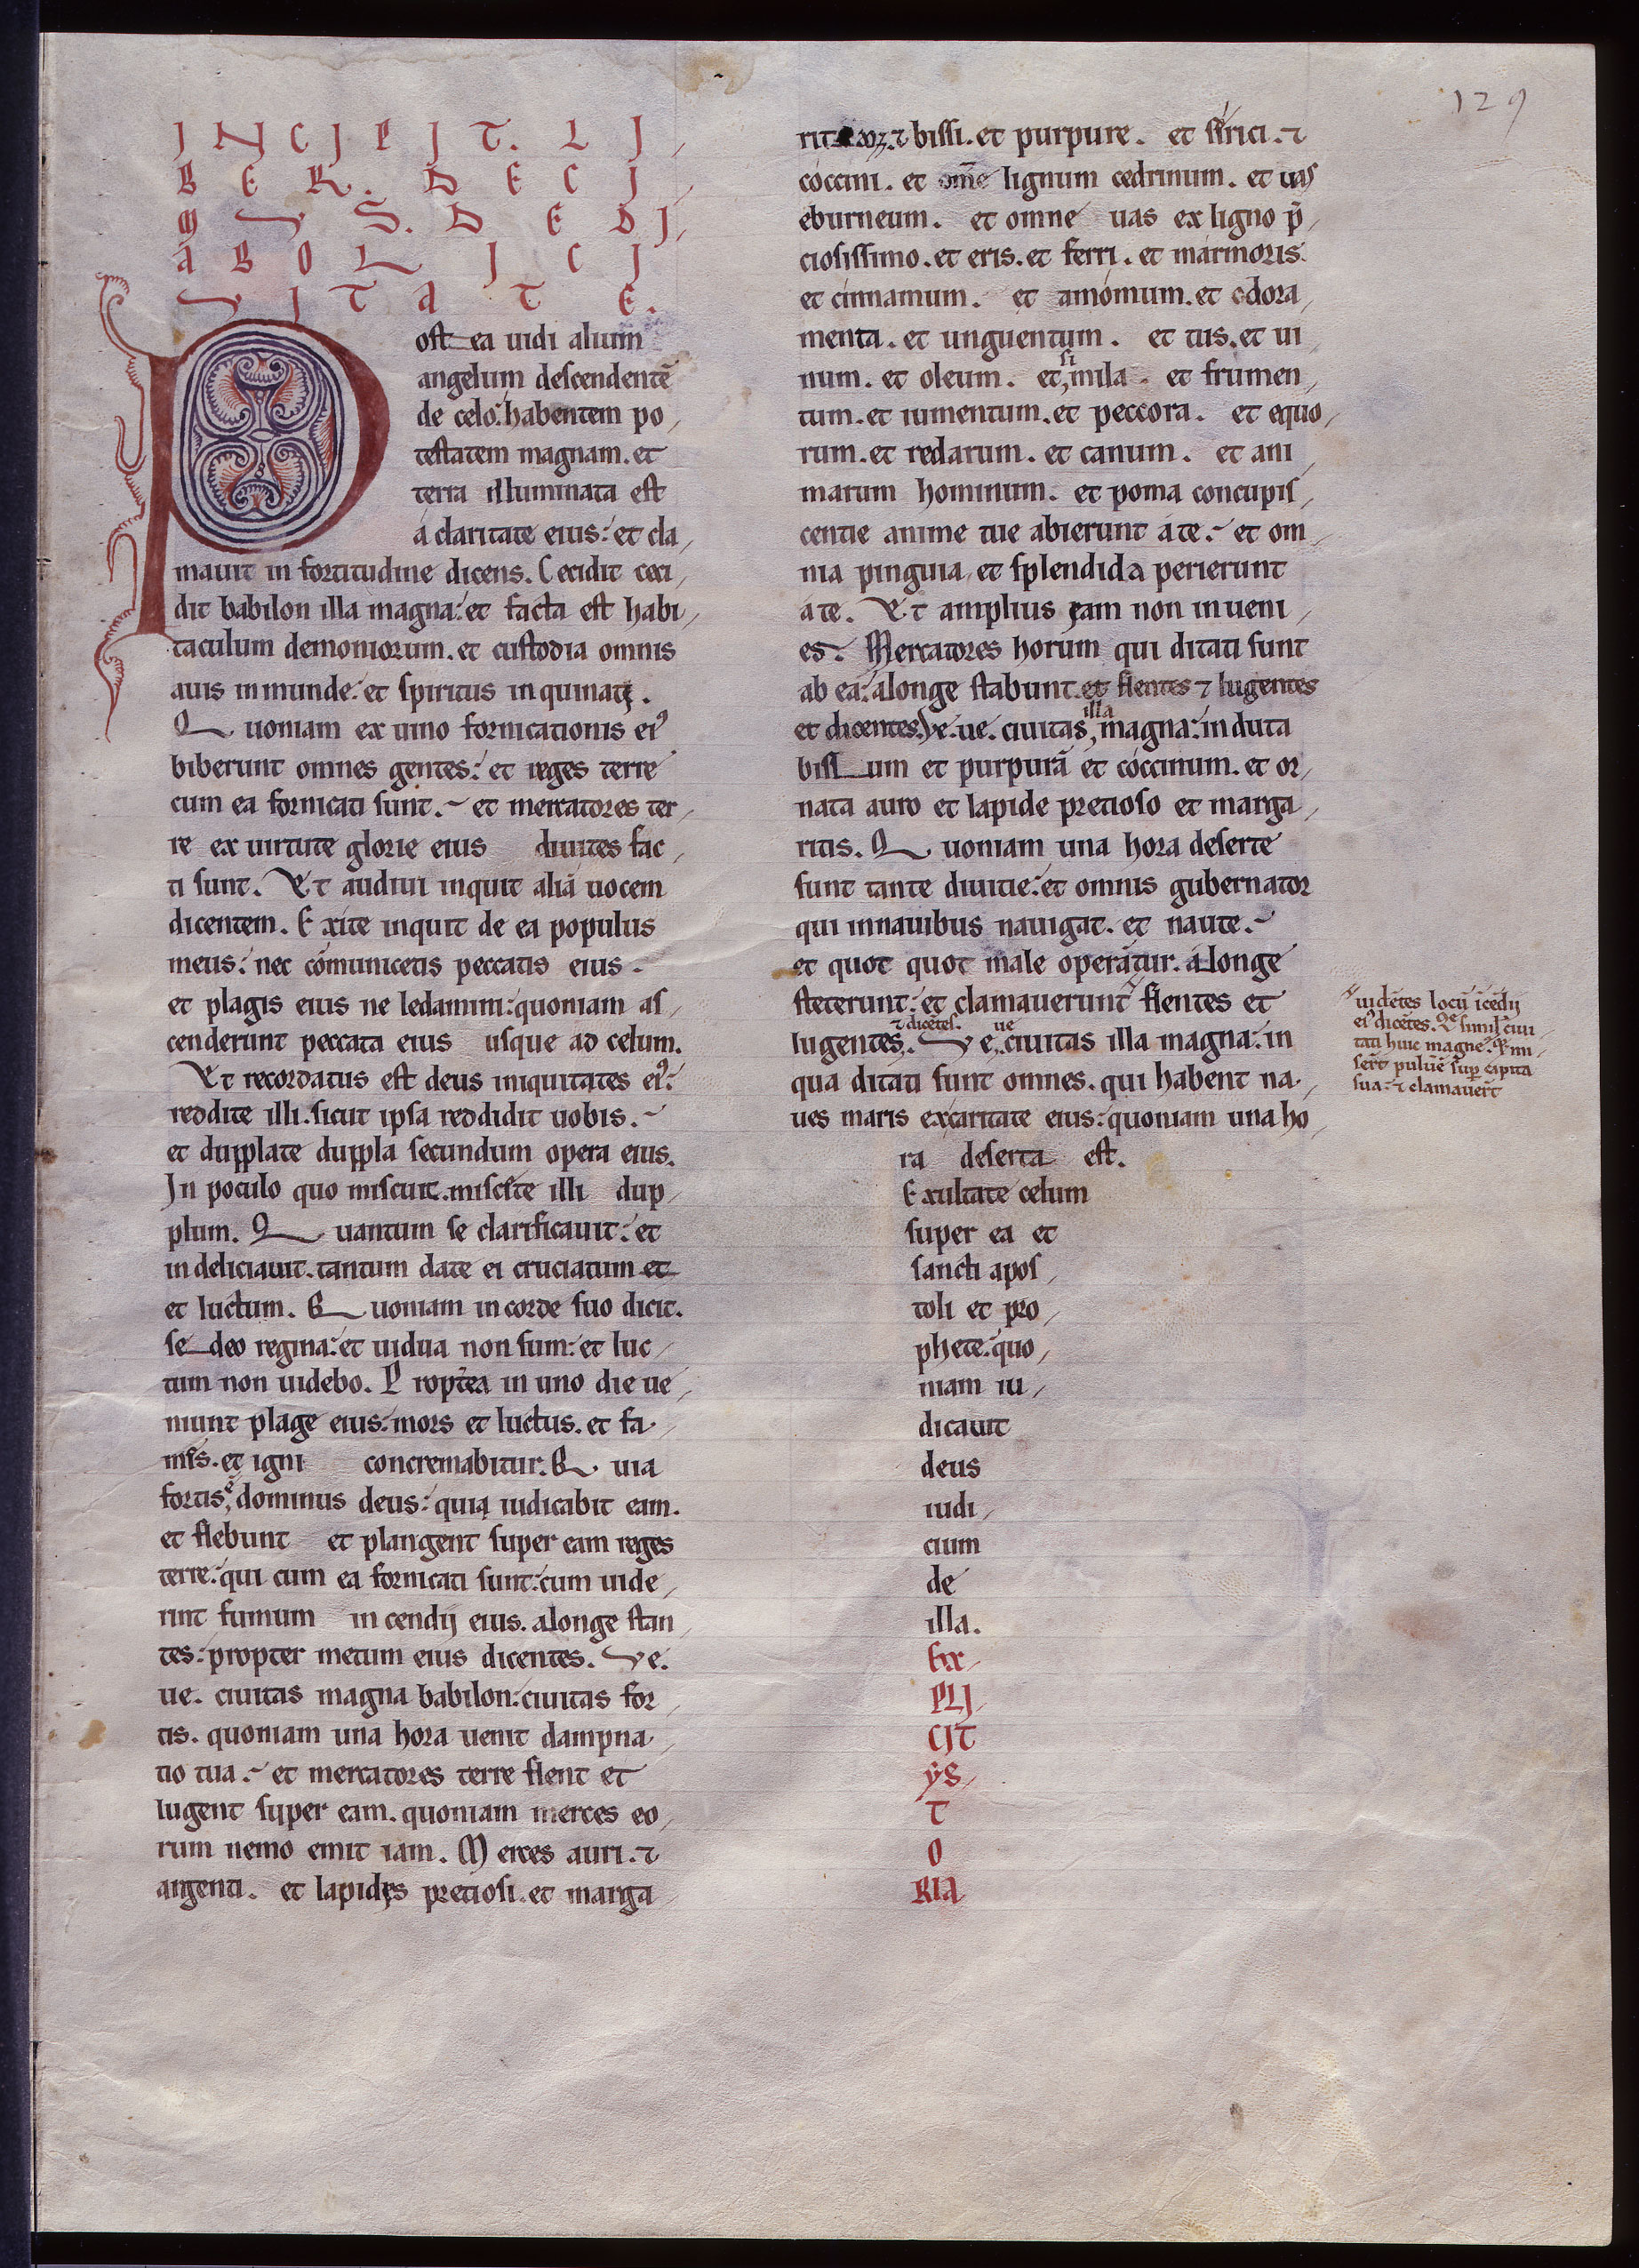 129
INCIPIT. LI,
BER. DECI,
MVS. DE DI,
ABOLICI
VITATE.
Post ea uidi alium
angelum descendentē
de celo: habentem po,
testatem magnam. et
terra illuminata est
á claritate eius: et cla,
mauit in fortitudine dicens. Cecidit ceci,
dit babilon illa magna: et facta est habi,
taculum demoniorum. et custodia omnis
auis inmunde: et spiritus inquinatę.
Quoniam ex uino fornicationis ei᾽
biberunt omnes gentes: et reges terre
cum ea fornicati sunt. et mercatores ter,
re ex uirtute glorie eius diuites fac,
ti sunt. Et audiui inquit aliā uocem
dicentem. Exite inquit de ea populus
meus: nec cōmunicetis peccatis eius.
et plagis eius ne ledamini: quoniam as,
cenderunt peccata eius usque ad celum.
Et recordatus est deus iniquitates ei᾽:
reddite illi. sicut ipsa reddidit uobis.
et dupplate duppla secundum opera eius.
In poculo quo miscuit. miscete illi dup,
plum. Quantum se clarificauit: et
indeliciauit. tantum date ei cruciatum et
et luctum. Quoniam in corde suo dicit.
sedeo regina: et uidua non sum: et luc,
tum non uidebo. Propt̄ea in uno die ue,
niunt plage eius: mors et luctus. et fa,
mes. et igni concremabitur. Quia
fortis ē, dominus deus: quia iudicabit eam.
et flebunt et plangent super eam reges
terre: qui cum ea fornicati sunt: cum uide,
rint fumum incendij eius. alonge stan,
tes: propter metum eius dicentes. Ve.
ue. ciuitas magna babilon: ciuitas for,
tis. quoniam una hora uenit dampna,
tio tua. et mercatores terre flent et
lugent super eam. quoniam merces eo,
rum nemo emit iam. Merces auri. ⁊
argenti. et lapidęs pretiosi. et marga,
rit ⁊ bissi. et purpure. et sirici. ⁊
cóccini. et omē lignum cedrinum. et uas
eburneum. et omne uas ex ligno p̄,
ciosissimo. et eris. et ferri. et mármoris.
et cinnamum. et amómum. et odora,
menta. et unguentum. et tus. et ui,
num. et oleum. et, simila. et frumen,
tum. et iumentum. et peccora. et equo,
rum. et redarum. et canum. et ani,
marum hominum. et poma concupis,
centie anime tue abierunt áte. et om,
nia pinguia, et splendida perierunt
áte. Et amplius eam non inueni,
es. Mercatores horum qui ditati sunt
ab ea: alonge stabunt. et flentes ⁊ lugentes
et dicentes. Ve. ue. ciuitas, illa magna: induta
bissum et purpurā et cóccinum. et or,
nata auro et lapide pretioso et marga,
ritis. Quoniam una hora deserte
sunt tante diuitie: et omnis gubernator
qui innauibus nauigat. et naute.
et quot quot male operātur. á longe
steterunt: et clamauerunt flentes et
lugentes, ⁊ dicētes. Ve, ue. ciuitas illa magna: in
qua ditati sunt omnes. qui habent na,
ues maris excaritate eius: quoniam una ho,
ra deserta est.
Exultate celum
super ea et
sancti apos,
toli et pro,
phete: quo,
niam iu,
dicauit
deus
iudi,
cium
de
illa.
Ex,
PLI,
CIT
ẏS,
T
O
RIA
uidētes locū īcēdij
ei᾽ dicētes. Q̄e simil᾽ ciui,
tati huic magne. & mi,
sert̄ puluē sup̄ capita
sua: ⁊ clamauert̄